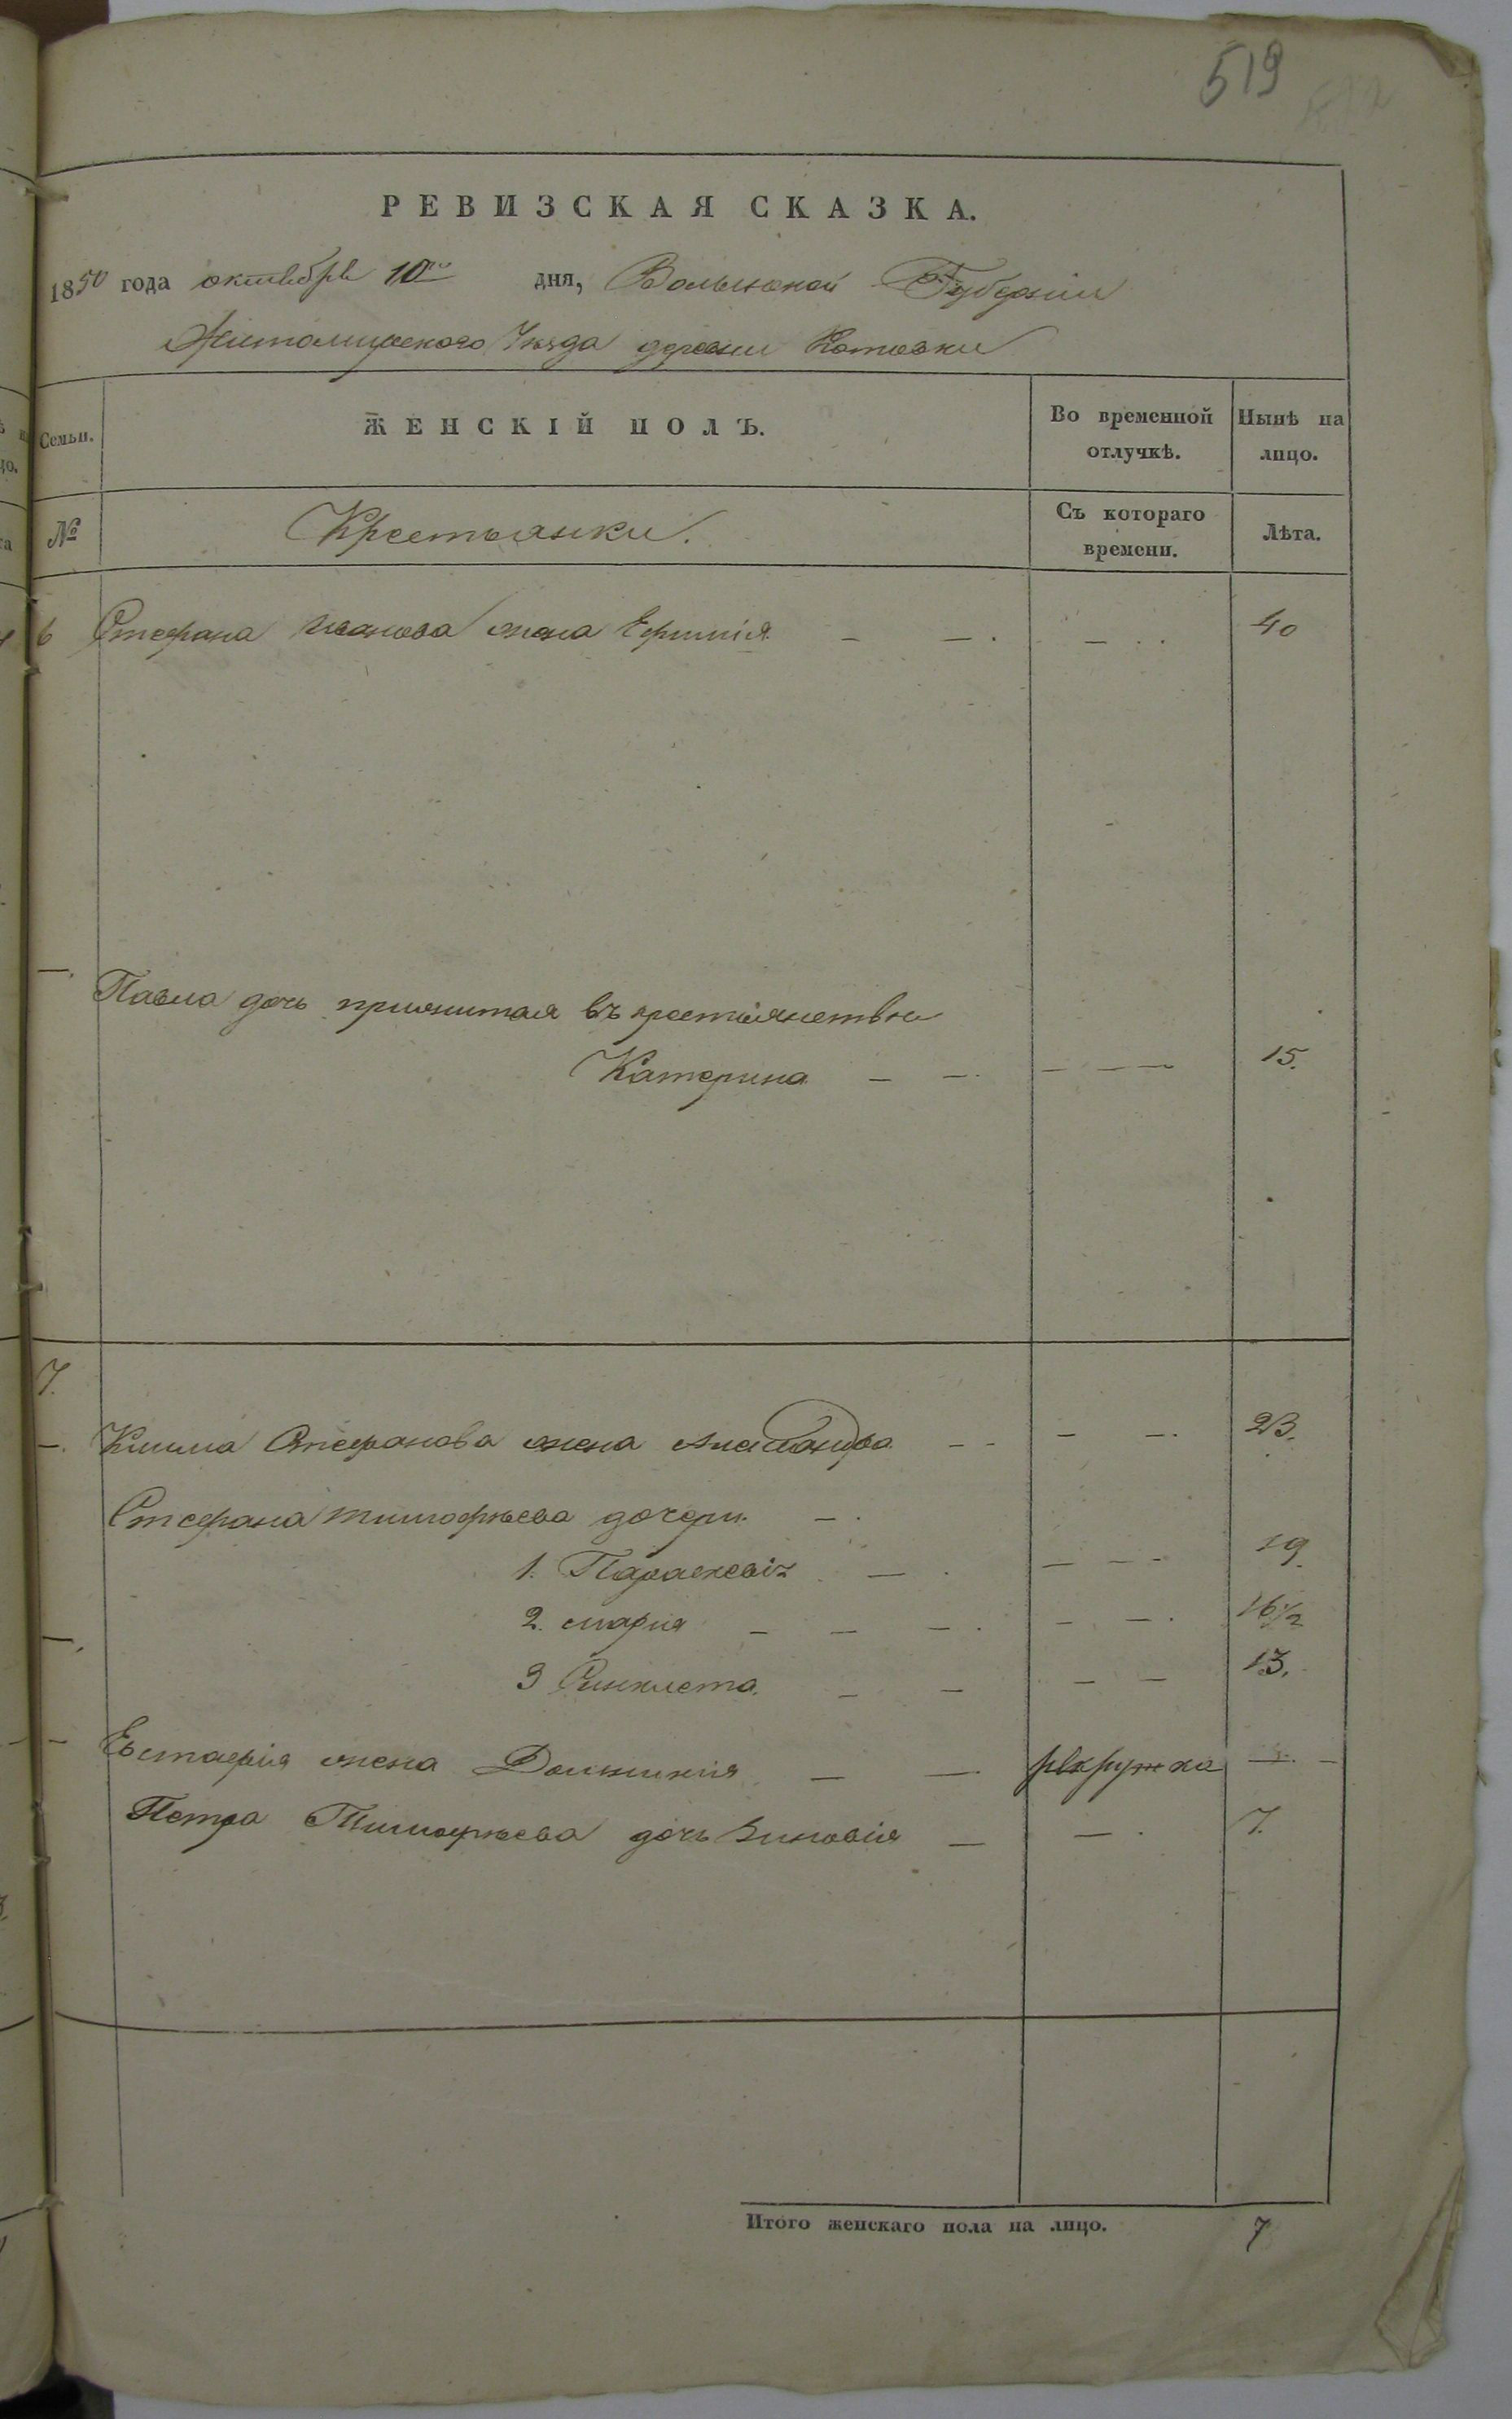 519
РЕВИЗСКАЯ СКАЗКА.
1850 года октября 10го дня, Волынской Губернии
Житомирского Уезда деревни Котовки
Семьи. ЖЕНСКІЙ ПОЛЪ. Во временной отлучкѣ. Нынѣ на лицо.
№ Крестьянки. Съ котораго времени. Лѣта.
6 Стефана Иванова жена 40
Павла дочь прижитая въ
Катерина 15.
7.
Стефанова жена 23.
Стефана Тимофѣева дочери
1. Параскевія 19
2. Марія 16 1/2
3 Синклета 13.
Евстафія жена Домникія рекрутка
Петра Тимофѣева дочь Зиновія 7.
Итого женскаго пола на лицо. 7